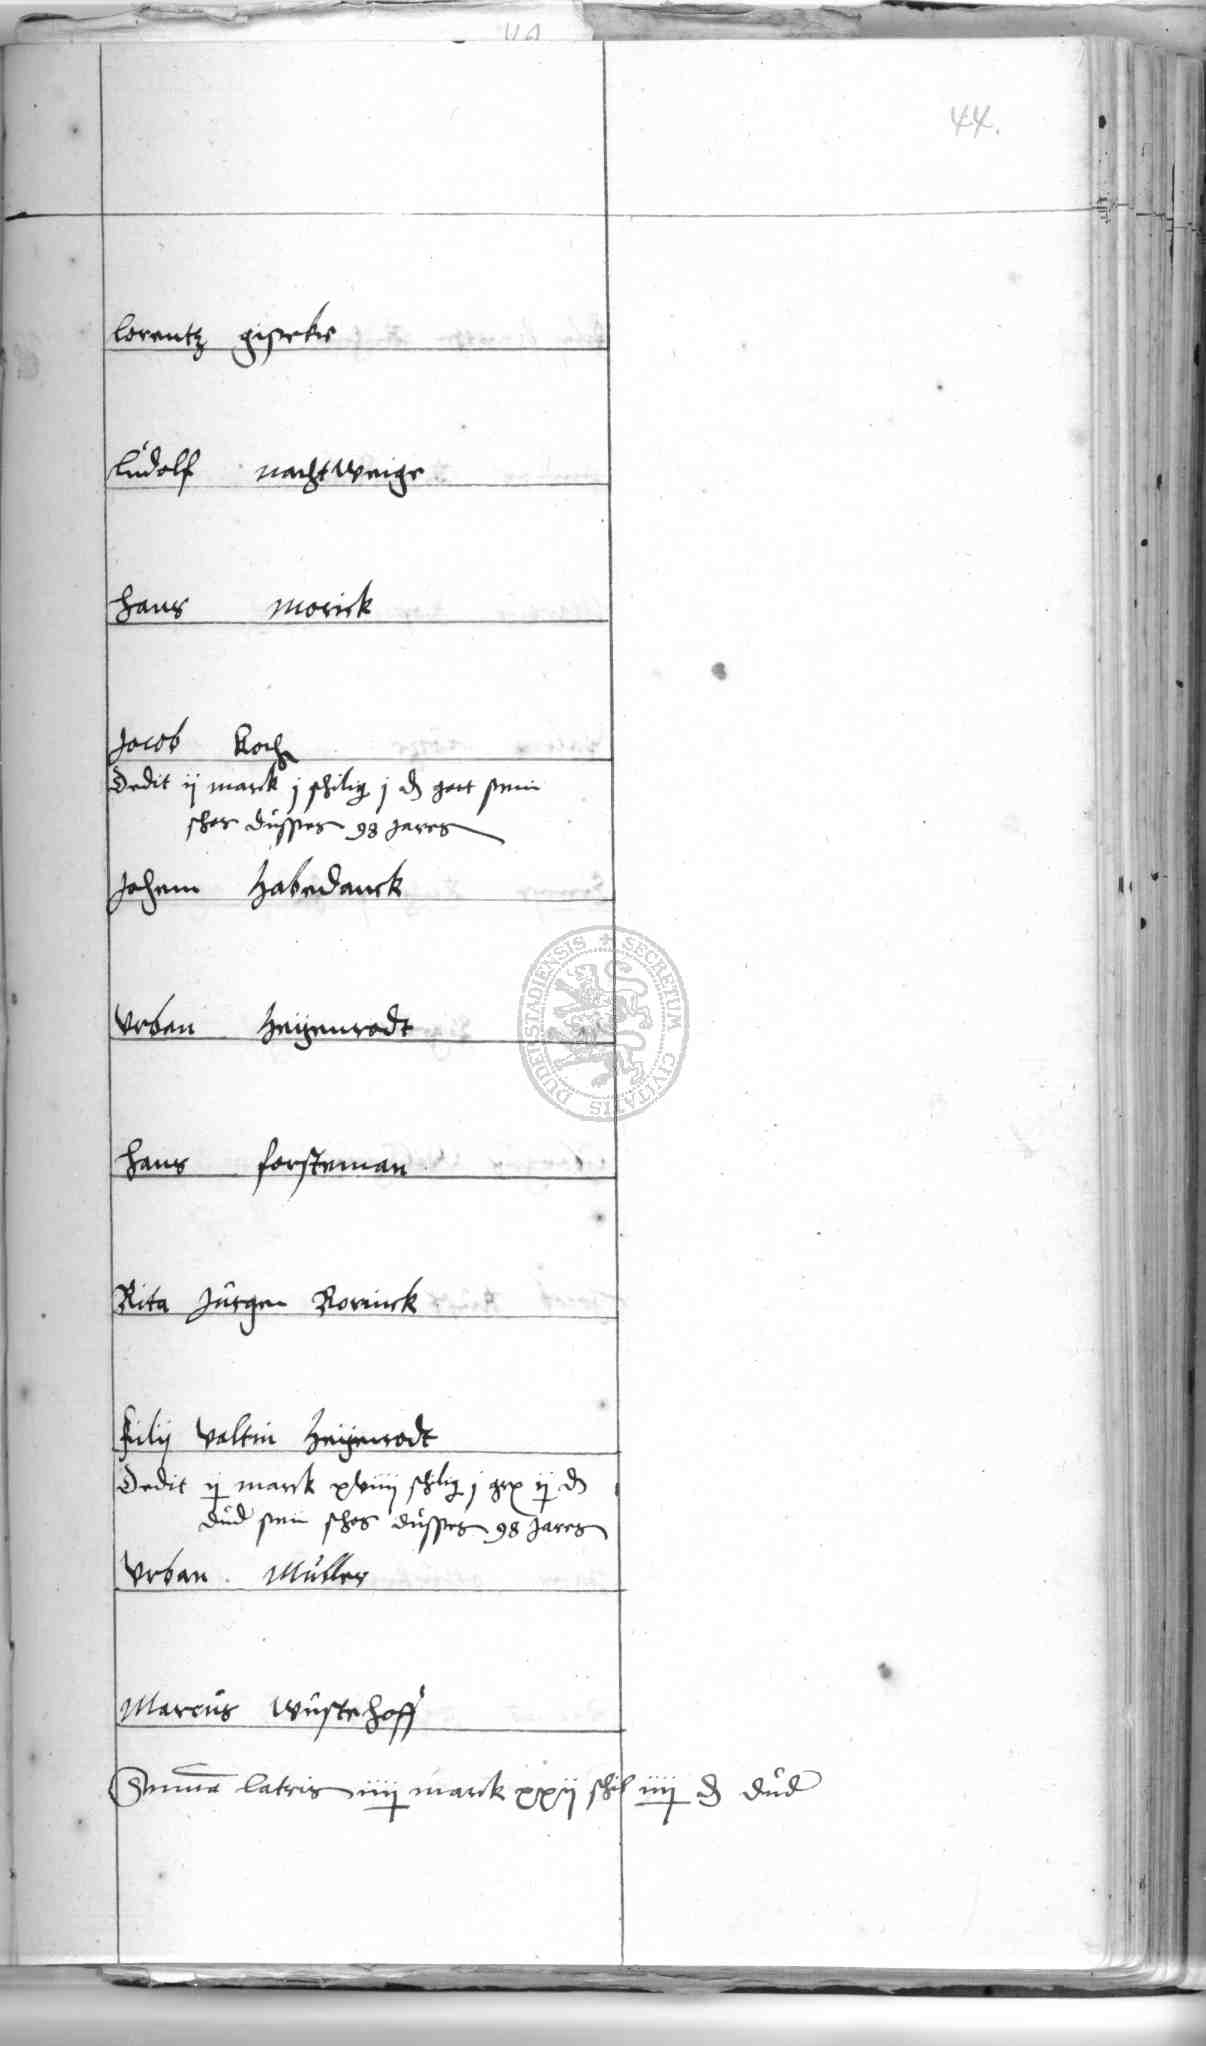 44.
lorentz giseke
Ludolf nachtweige
hans Morick
Jacob Koch
Dedit ij marck j schilig j d gort sein
schos dusses 98 Jares
Jochem Habedanck
Vrban Heygenrodt
hans forsteman
Rita Jurgen Rorinck
filij Valtin Heygenrodt
Dedit ij marck xviiij schilig j ij d
dud sein schos dusses 98 Jares
Vrban Muller
Marcus Wustehoff
Summa lateris iiij marck xxij schil iiij d dud
SECRETUM CIVITATIS DUDERSTADIENSIS